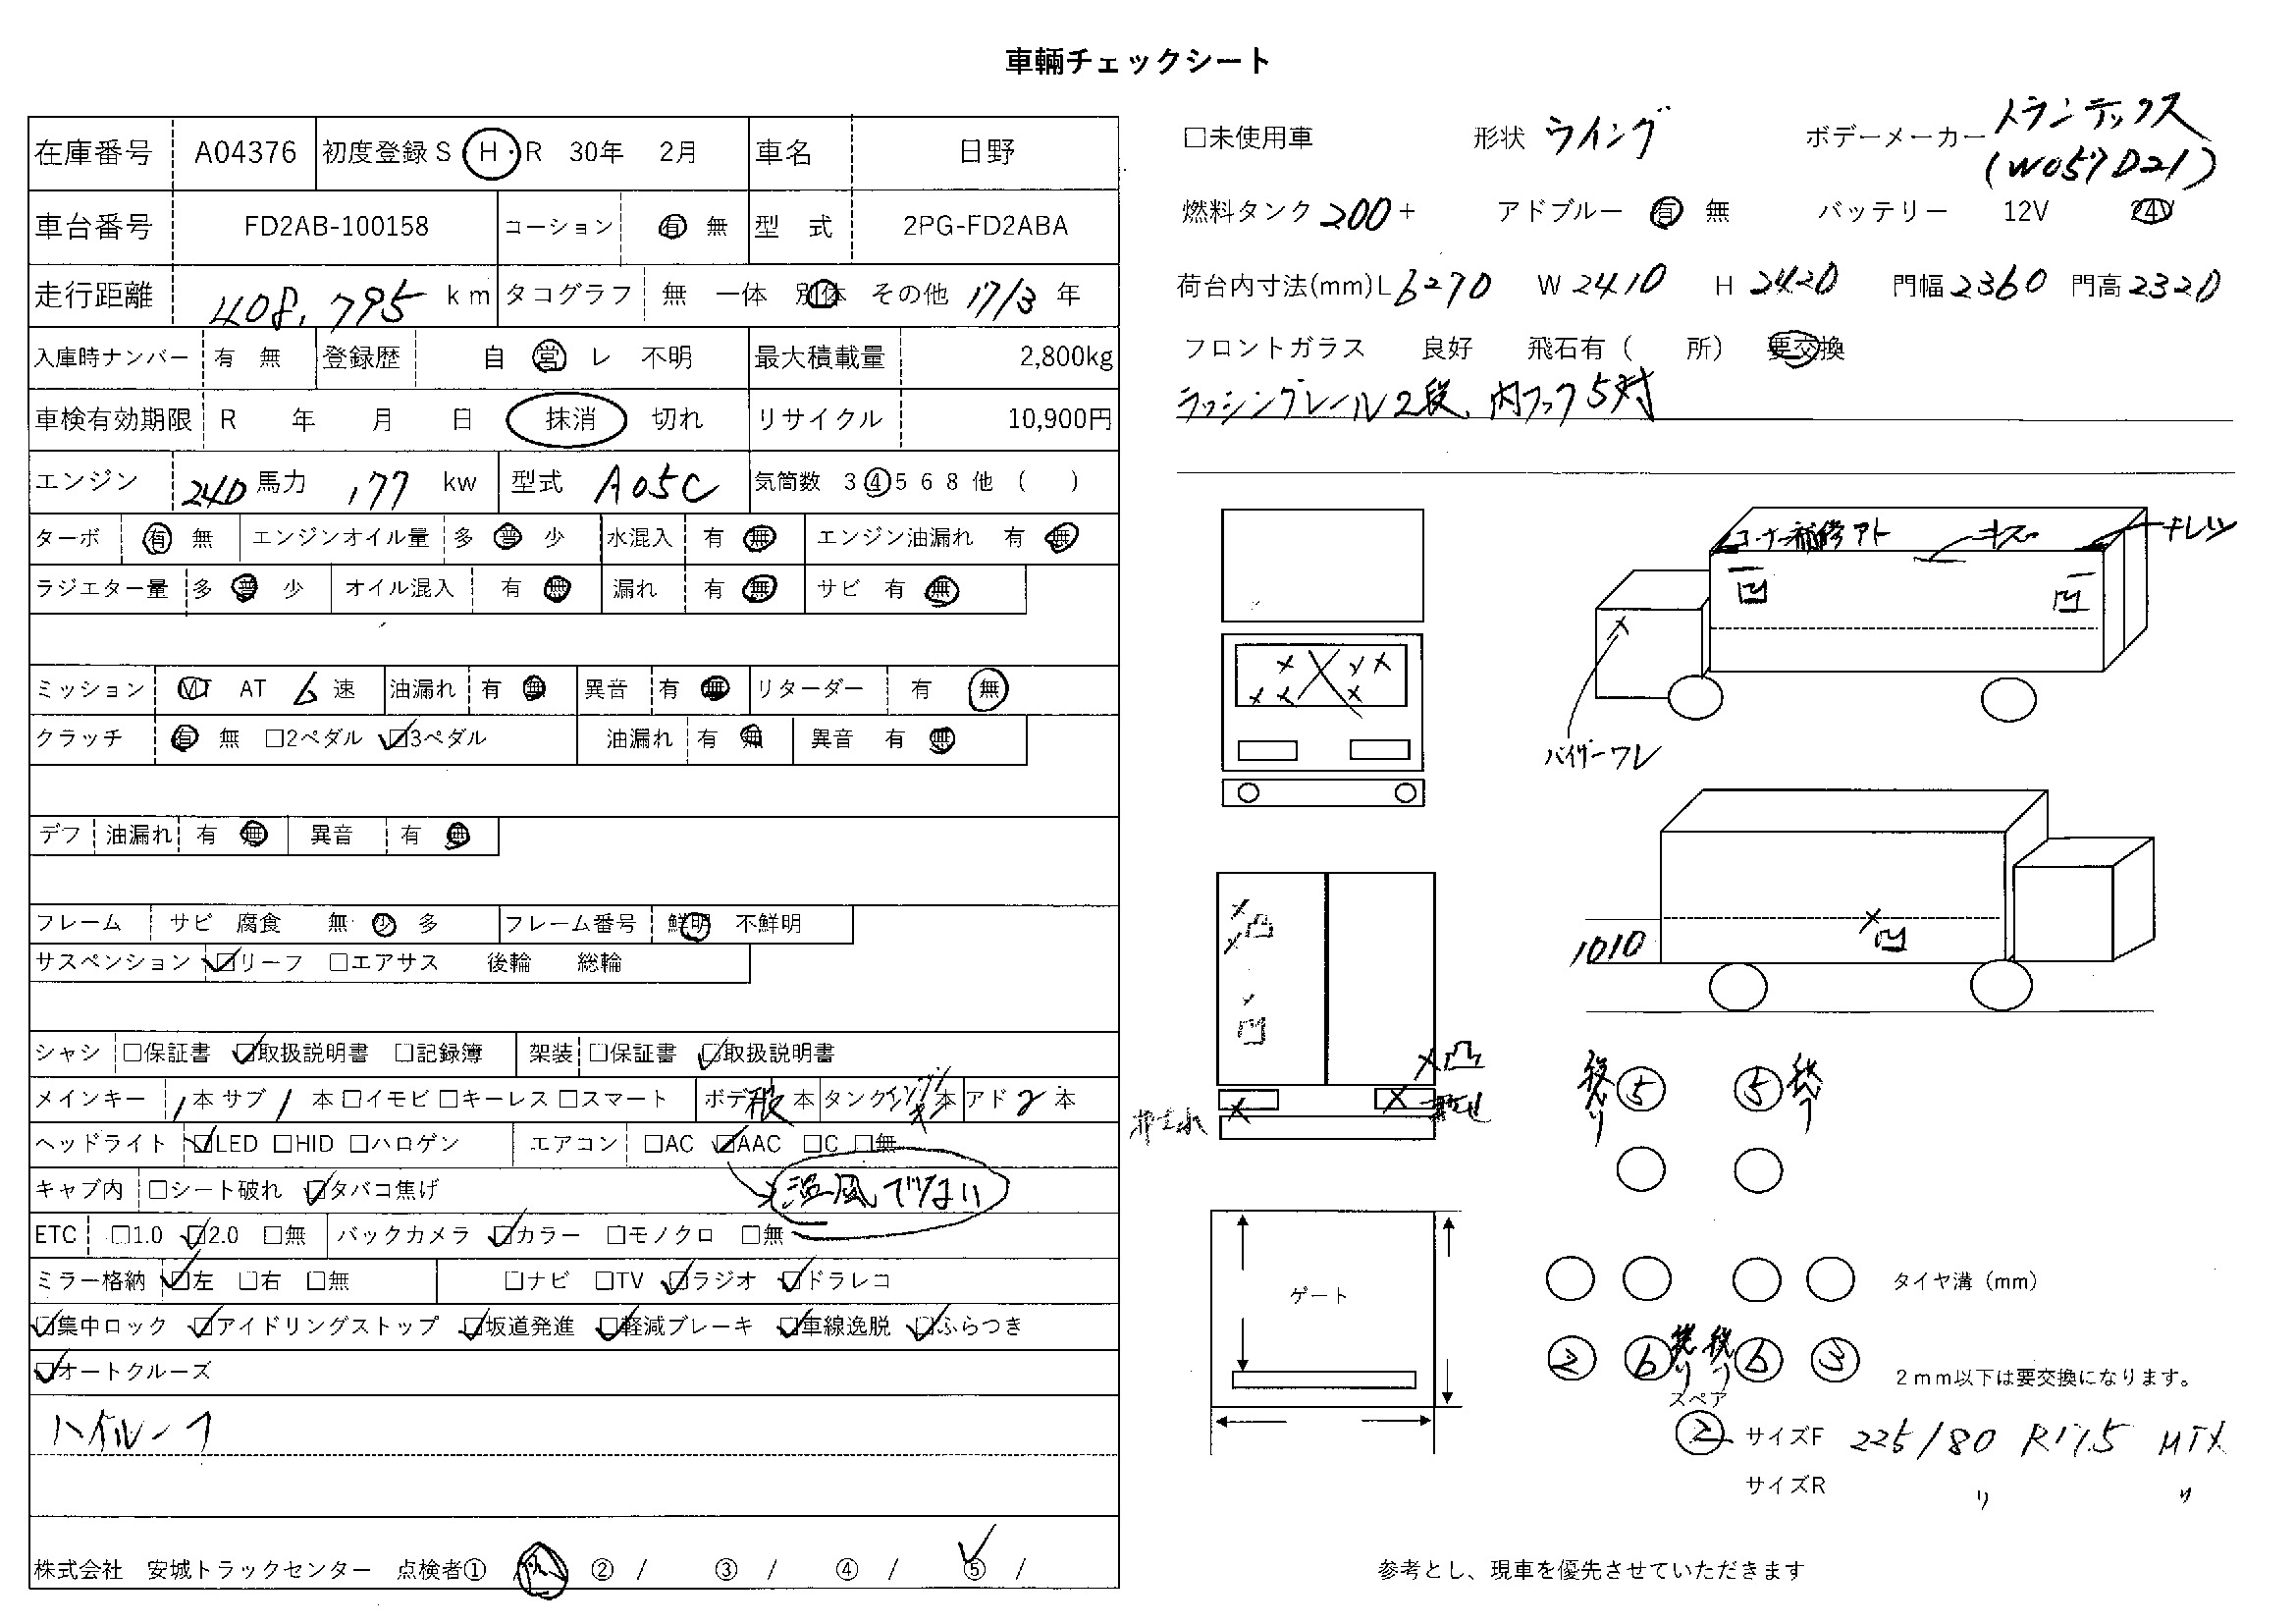 車輛チェックシート
在庫番号 A04376 初度登録 S H・R 30年 2月 車名 日野
車台番号 FD2AB-100158 コーション 有 無 型 式 2PG-FD2ABA
走行距離 408,795 km タコグラフ 無 一体 別体 その他 17/3 年
入庫時ナンバー 有 無 登録歴 自 営 レ 不明 最大積載量 2,800kg
車検有効期限 R 年 月 日 抹消 切れ リサイクル 10,900円
エンジン 240 馬力 177 kw 型式 A05C 気筒数 3 4 5 6 8 他 ( )
ターボ 有 無 エンジンオイル量 多 普 少 水混入 有 無 エンジン油漏れ 有 無
ラジエター量 多 普 少 オイル混入 有 無 漏れ 有 無 サビ 有 無
ミッション MT AT 6 速 油漏れ 有 無 異音 有 無 リターダー 有 無
クラッチ 有 無 □2ペダル □3ペダル 油漏れ 有 無 異音 有 無
デフ 油漏れ 有 無 異音 有 無
フレーム サビ 腐食 無 少 多 フレーム番号 鮮明 不鮮明
サスペンション □リーフ □エアサス 後輪 総輪
シャシ □保証書 □取扱説明書 □記録簿 架装 □保証書 □取扱説明書
メインキー 1 本 サブ 1 本 □イモビ □キーレス □スマート ボデー 本 タンク 本 アド 2 本
ヘッドライト □LED □HID □ハロゲン エアコン □AC □AAC □C □無
キャブ内 □シート破れ □タバコ焦げ 温風でない
ETC □1.0 □2.0 □無 バックカメラ □カラー □モノクロ □無
ミラー格納 □左 □右 □無 □ナビ □TV □ラジオ □ドラレコ
□集中ロック □アイドリングストップ □坂道発進 □軽減ブレーキ □車線逸脱 □ふらつき
□オートクルーズ
ハイルーフ
株式会社 安城トラックセンター 点検者① / ② / ③ / ④ / ⑤ /
□未使用車 形状 ウイング ボデーメーカー トランテックス
(W057D21)
燃料タンク 200 + アドブルー 有 無 バッテリー 12V 24V
荷台内寸法(mm) L 6270 W 2410 H 2420 門幅 2360 門高 2320
フロントガラス 良好 飛石有 ( 所) 要交換
ラッシングレール2段、内フック5対
コーナー補修アト キズ キレツ
凹 凹
バイザーワレ
凹
1010
凸
凹
凸
5 5
ゲート
タイヤ溝 (mm)
2 6 6 3
2mm以下は要交換になります。
スペア
2 サイズF 225/80 R17.5 MIX
サイズR 〃 〃
参考とし、現車を優先させていただきます